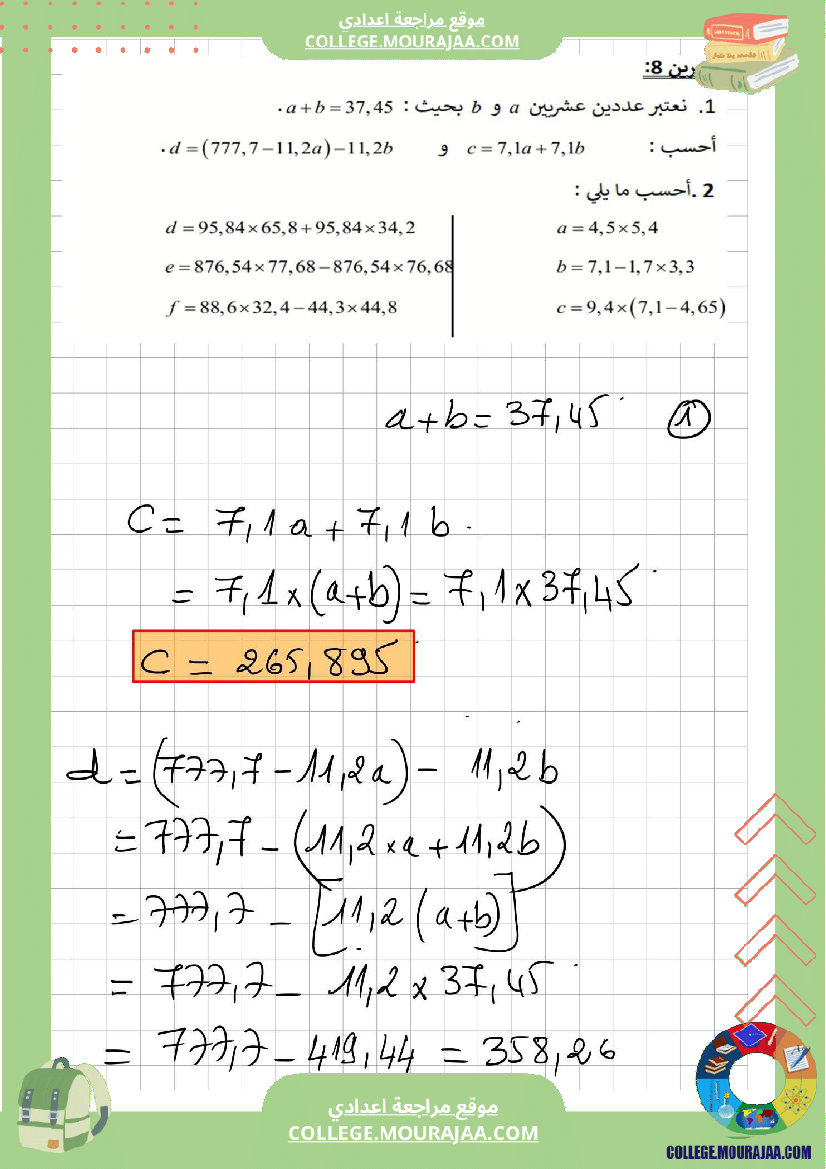 موقع مراجعة اعدادي
COLLEGE.MOURAJAA.COM
رين 8:
1. نعتبر عددين عشريين a و b بحيث : a+b=37,45 .
أحسب : c=7,1a+7,1b و d=(777,7-11,2a)-11,2b .
2 .أحسب ما يلي :
a=4,5×5,4
d=95,84×65,8+95,84×34,2
b=7,1-1,7×3,3
e=876,54×77,68-876,54×76,68
c=9,4×(7,1-4,65)
f=88,6×32,4-44,3×44,8
① a+b=37,45
C= 7,1a+7,1b
= 7,1×(a+b)=7,1×37,45
C = 265,895
d=(777,7-11,2a)- 11,2b
=777,7-(11,2×a+11,2b)
=777,7-[11,2(a+b)]
= 777,7- 11,2×37,45
= 777,7-419,44 = 358,26
موقع مراجعة اعدادي
COLLEGE.MOURAJAA.COM
COLLEGE.MOURAJAA.COM